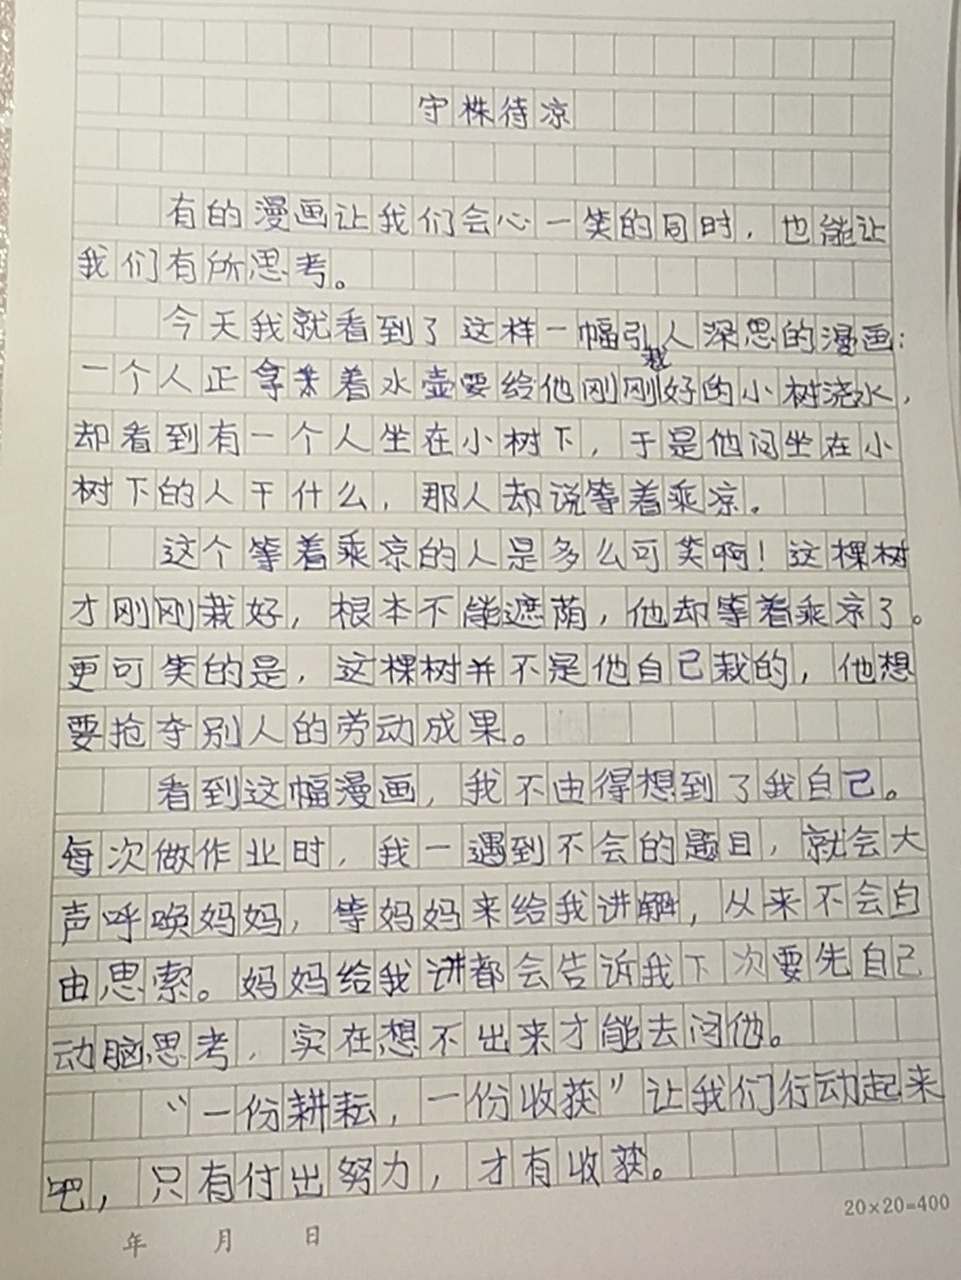 守株待凉
有的漫画让我们会心一笑的同时，也能让
我们有所思考。
今天我就看到了这样一幅引人深思的漫画：
一个人正拿着水壶要给他刚刚栽好的小树浇水，
却看到有一个人坐在小树下，于是他问坐在小
树下的人干什么，那人却说等着乘凉。
这个等着乘凉的人是多么可笑啊！这棵树
才刚刚栽好，根本不能遮荫，他却等着乘凉了。
更可笑的是，这棵树并不是他自己栽的，他想
要抢夺别人的劳动成果。
看到这幅漫画，我不由得想到了我自己。
每次做作业时，我一遇到不会的题目，就会大
声呼唤妈妈，等妈妈来给我讲解，从来不会自
由思索。妈妈给我讲都会告诉我下次要先自己
动脑思考，实在想不出来才能去问他。
“一份耕耘，一份收获”让我们行动起来
吧，只有付出努力，才有收获。
20×20=400
年 月 日